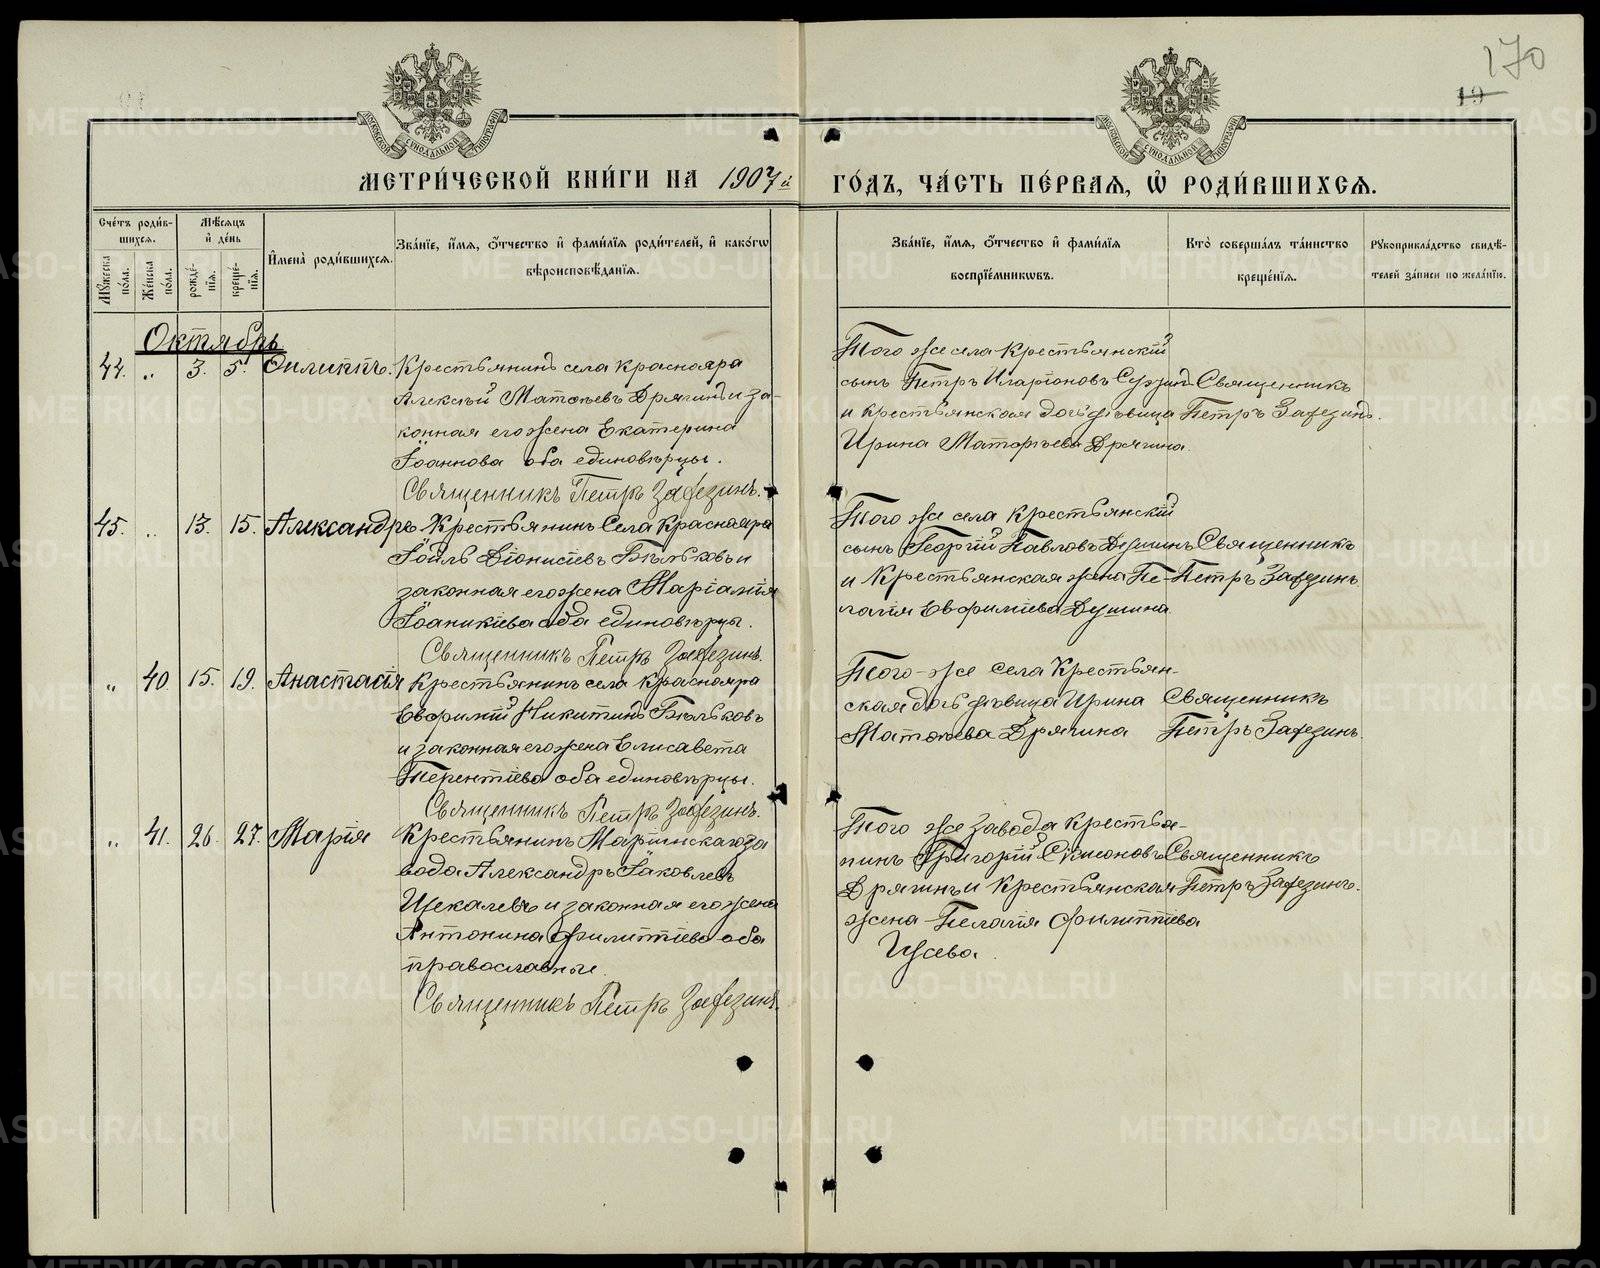 170
19
МЕТРИ́ЧЕСКОЙ КНИ́ГИ НА 1907й ГО́ДЪ, ЧА́СТЬ ПЕ́РВАЯ, Ѡ҆ РОДИ́ВШИХСЯ.
Сче́тъ роди́вшихся.
Мѣ́сяцъ и҆ де́нь
Мꙋ́жеска по́ла.
Же́нска по́ла.
рожде́нїѧ.
креще́нїѧ.
И҆мена̀ роди́вшихсѧ.
Зва́нїе, и҆́мѧ, ѻ҆́тчество и҆ фами́лїѧ роди́телей, и҆ како́гѡ
вѣроисповѣ́данїѧ.
Зва́нїе, и҆́мѧ, ѻ҆́тчество и҆ фами́лїѧ
воспрїе́мникѡвъ.
Кто̀ соверша́лъ та́инство
креще́нїѧ.
Рꙋкоприкла́дство свидѣ́-
телей за́писи по жела́нїю.
Октябрь
44. „ 3. 5. Филиппъ.
Крестьянинъ села Краснояра
Алексѣй Матѳѣевъ Дрягинъ и за-
конная его жена Екатерина
Іоаннова оба единовѣрцы.
Священникъ Петръ Зафезинъ.
Того же села крестьянскій
сынъ Петръ Иларіоновъ
и крестьянская дочь дѣвица
Ирина Матѳѣева Дрягина.
Священникъ
Петръ Зафезинъ.
45. „ 13. 15. Александръ
Крестьянинъ Села Краснояра
Іоиль Діонисіевъ Бѣльковъ и
законная его жена Маріамія
Іоаникіева оба единовѣрцы.
Священникъ Петръ Зафезинъ.
Того же села крестьянскій
сынъ Георгій Павловъ Душинъ
и Крестьянская жена Пе-
лагія Евфиміева Душина
Священникъ
Петръ Зафезинъ
„ 40. 15. 19. Анастасія
Крестьянинъ села Краснояра
Евфимій Никитинъ Бѣльковъ
и законная его жена Елисавета
Терентіева оба единовѣрцы.
Священникъ Петръ Зафезинъ.
Того-же села Крестьян-
ская дочь дѣвица Ирина
Матѳѣева Дрягина
Священникъ
Петръ Зафезинъ.
„ 41. 26. 27. Марія
Крестьянинъ Маріинскаго за
вода Александръ Іаковлевъ
Щекалевъ и законная его жена
Антонина Филиппіева оба
православные.
Священникъ Петръ Зафезинъ.
Того же завода Крестья-
нинъ Григорій Симеоновъ
Дрягинъ и Крестьянская
жена Пелагія Филиппіева
Священникъ
Петръ Зафезинъ.
METRIKI.GASO-URAL.RU